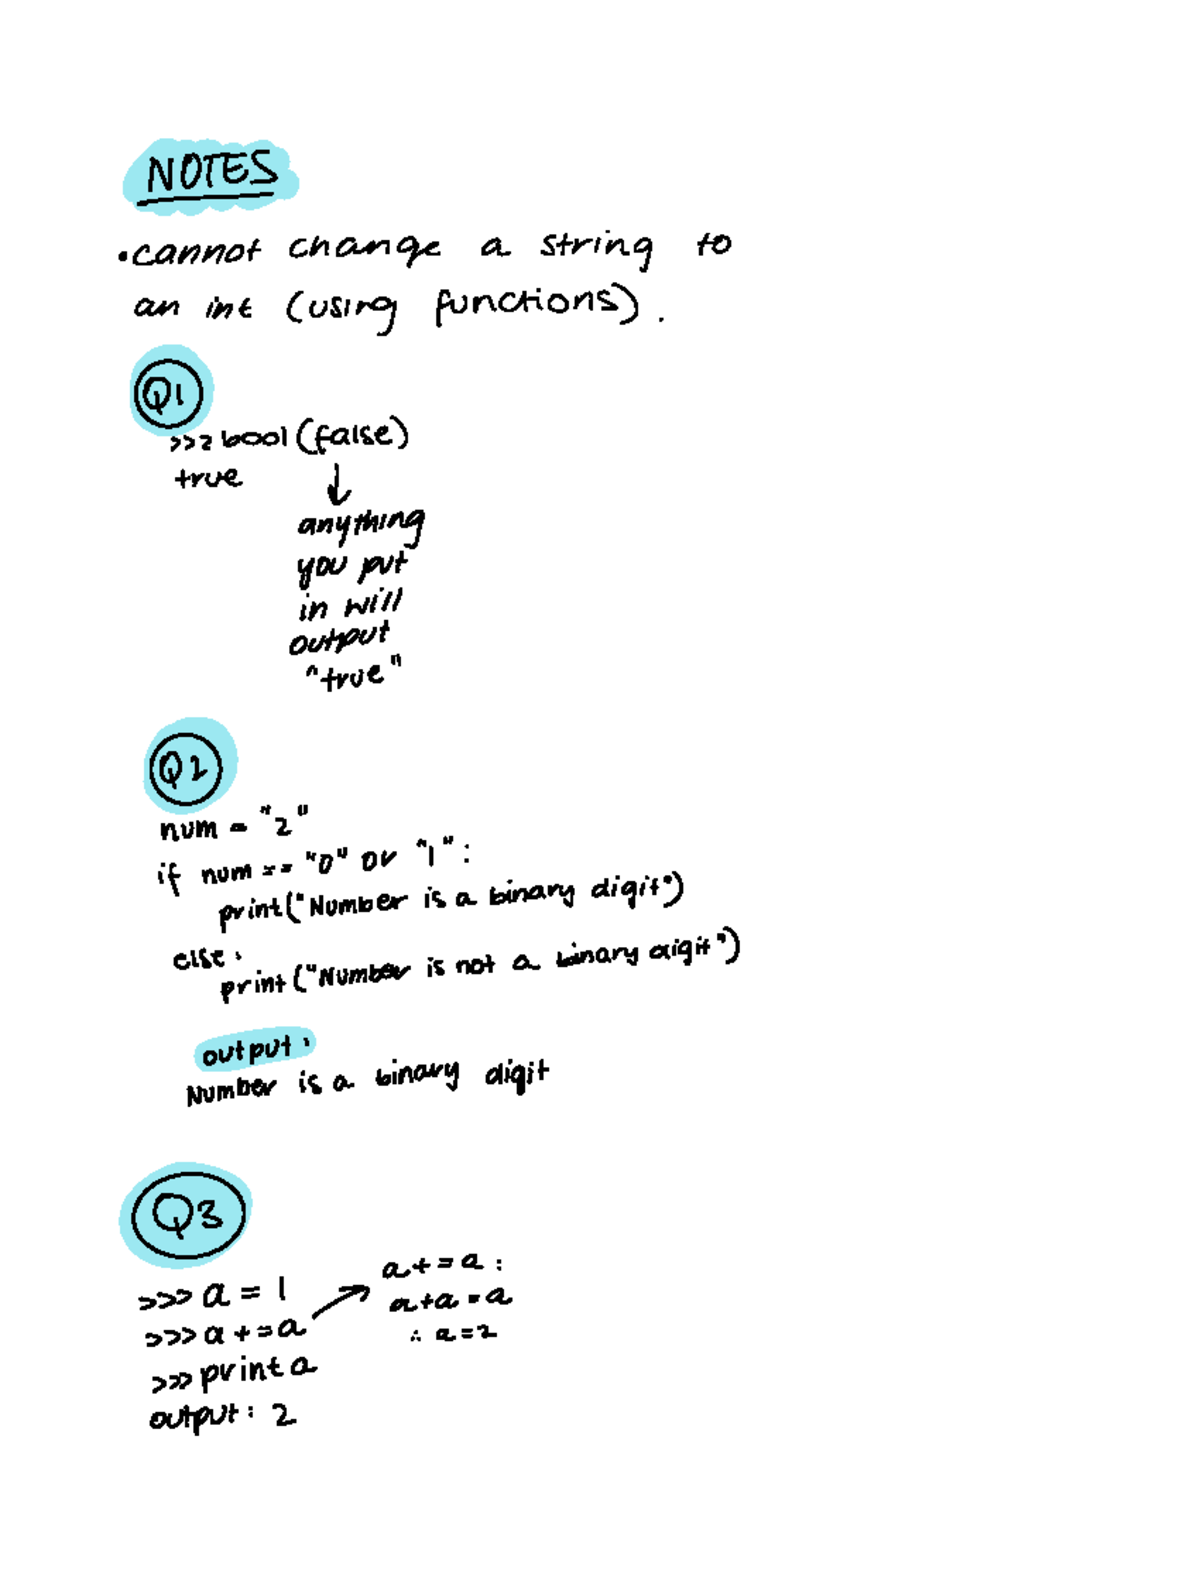 NOTES
• cannot change a string to
an int (using functions).
Q1
>>> bool (false)
true
↓
anything
you put
in will
output
"true"
Q2
num = "2"
if num == "0" or "1":
print("Number is a binary digit")
else:
print("Number is not a binary digit")
output:
Number is a binary digit
Q3
>>> a = 1
>>> a += a
>>> print a
output: 2
a += a:
a+a = a
∴ a=2